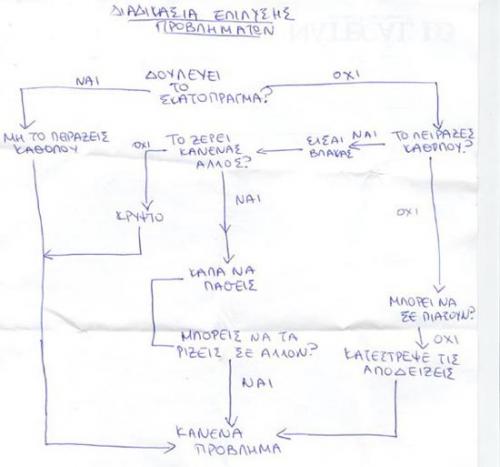 ΔΙΑΔΙΚΑΣΙΑ ΕΠΙΛΥΣΗΣ
ΠΡΟΒΛΗΜΑΤΩΝ
ΔΟΥΛΕΥΕΙ
ΤΟ
ΣΚΑΤΟΠΡΑΓΜΑ?
ΝΑΙ
ΟΧΙ
ΜΗ ΤΟ ΠΕΙΡΑΖΕΙΣ
ΚΑΘΟΛΟΥ
ΤΟ ΞΕΡΕΙ
ΚΑΝΕΝΑΣ
ΑΛΛΟΣ?
ΕΙΣΑΙ
ΒΛΑΚΑΣ
ΝΑΙ
ΤΟ ΠΕΙΡΑΞΕΣ
ΚΑΘΟΛΟΥ?
ΟΧΙ
ΝΑΙ
ΟΧΙ
ΚΡΥΨΤΟ
ΚΑΛΑ ΝΑ
ΠΑΘΕΙΣ
ΜΠΟΡΕΙ ΝΑ
ΣΕ ΠΙΑΣΟΥΝ?
ΟΧΙ
ΜΠΟΡΕΙΣ ΝΑ ΤΑ
ΡΙΞΕΙΣ ΣΕ ΑΛΛΟΝ?
ΚΑΤΕΣΤΡΕΨΕ ΤΙΣ
ΑΠΟΔΕΙΞΕΙΣ
ΝΑΙ
ΚΑΝΕΝΑ
ΠΡΟΒΛΗΜΑ